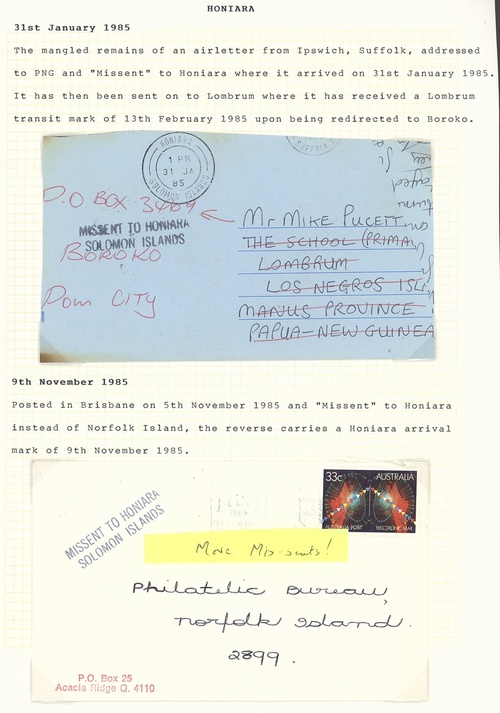 HONIARA
31st January 1985
The mangled remains of an airletter from Ipswich, Suffolk, addressed
to PNG and "Missent" to Honiara where it arrived on 31st January 1985.
It has then been sent on to Lombrum where it has received a Lombrum
transit mark of 13th February 1985 upon being redirected to Boroko.
HONIARA
1 PM
31 JA
85
SOLOMON ISLANDS
SUFFOLK
P.O BOX 3469
MISSENT TO HONIARA
SOLOMON ISLANDS
BOROKO
POM CITY
MR MIKE PUCETT
THE SCHOOL (PRIMA
LOMBRUM
LOS NEGROS ISL
MANUS PROVINCE
PAPUA-NEW GUINEA
9th November 1985
Posted in Brisbane on 5th November 1985 and "Missent" to Honiara
instead of Norfolk Island, the reverse carries a Honiara arrival
mark of 9th November 1985.
MISSENT TO HONIARA
SOLOMON ISLANDS
1985
33c AUSTRALIA
AUSTRALIA POST ELECTRONIC MAIL
More Mis-sents!
Philatelic Bureau,
Norfolk Island.
2899.
P.O. Box 25
Acacia Ridge Q. 4110